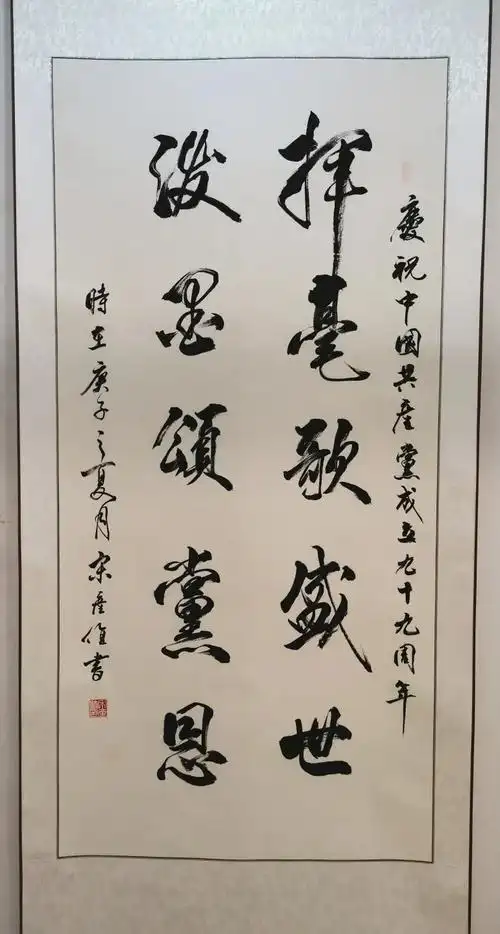 慶祝中國共產黨成立九十九周年
揮毫歌盛世
潑墨頌黨恩
時在庚子之夏月宋產維書